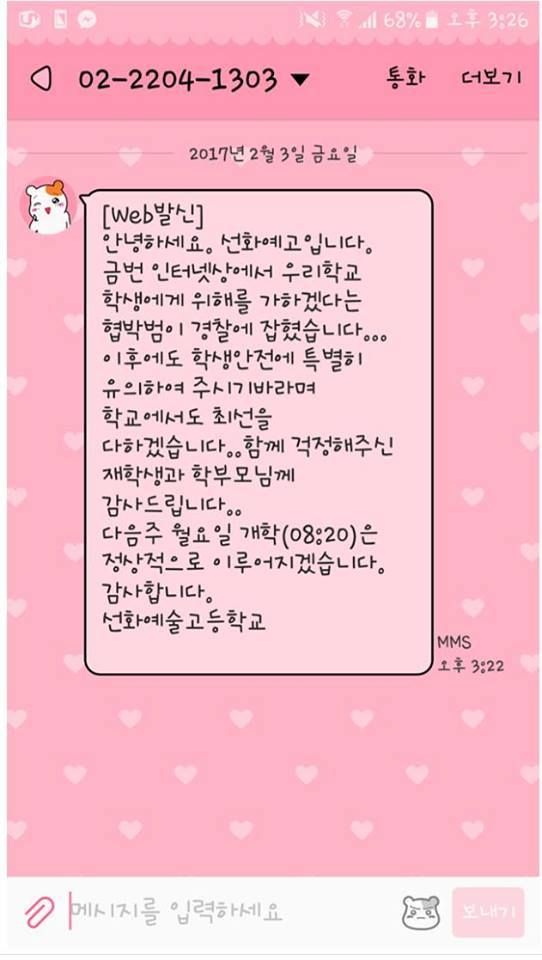 68% 오후 3:26
02-2204-1303 ▼ 통화 더보기
2017년 2월 3일 금요일
[Web발신]
안녕하세요. 선화예고입니다.
금번 인터넷상에서 우리학교
학생에게 위해를 가하겠다는
협박범이 경찰에 잡혔습니다...
이후에도 학생안전에 특별히
유의하여 주시기바라며
학교에서도 최선을
다하겠습니다..함께 걱정해주신
재학생과 학부모님께
감사드립니다..
다음주 월요일 개학(08:20)은
정상적으로 이루어지겠습니다.
감사합니다.
선화예술고등학교
MMS
오후 3:22
메시지를 입력하세요
보내기